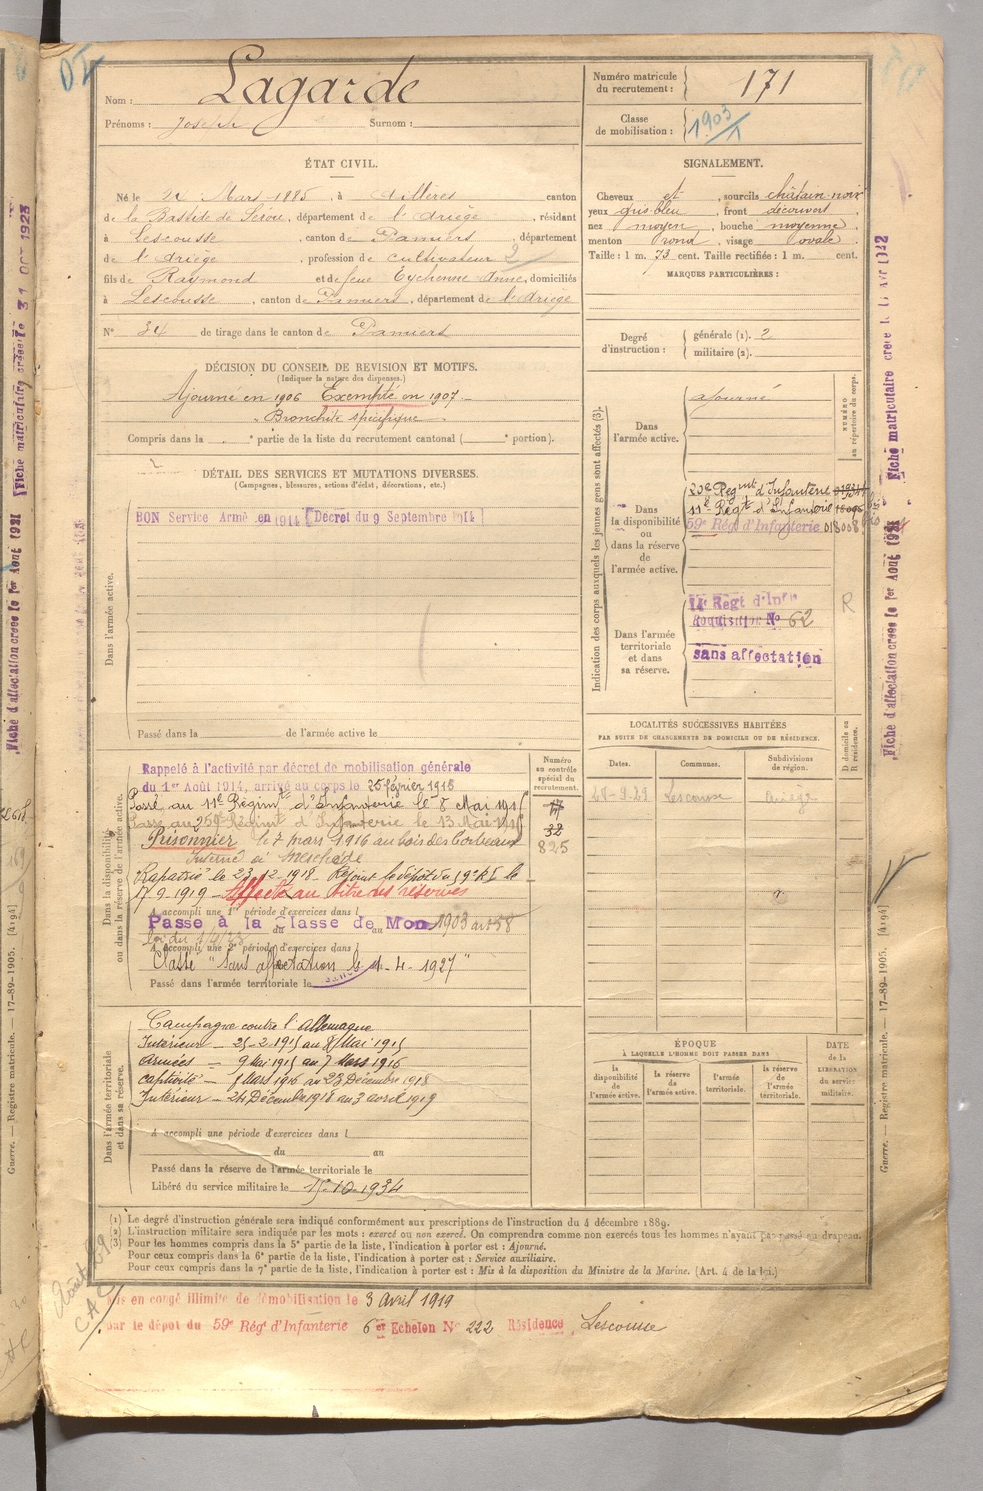 Nom : Lagarde
Prénoms : Joseph Surnom :
Numéro matricule du recrutement : 171
Classe de mobilisation : 1903
ÉTAT CIVIL.
Né le 24 Mars 1885, à Aillères canton
de la Bastide de Sérou, département de l'Ariège, résidant
à Lescousse, canton de Pamiers, département
de l'Ariège, profession de cultivateur
fils de Raymond et de feue Eychenne Anne, domiciliés
à Lescousse, canton de Pamiers, département de l'Ariège
N° 34 de tirage dans le canton de Pamiers
SIGNALEMENT.
Cheveux et, sourcils châtain-noir
yeux gris-bleu, front découvert,
nez moyen, bouche moyenne,
menton rond, visage ovale.
Taille : 1 m. 73 cent. Taille rectifiée : 1 m. cent.
MARQUES PARTICULIÈRES :
Degré d'instruction : générale (1). 2
militaire (2).
DÉCISION DU CONSEIL DE REVISION ET MOTIFS.
(Indiquer la nature des dispenses.)
Ajourné en 1906 Exempté en 1907.
Bronchite spécifique
Compris dans la e partie de la liste du recrutement cantonal ( e portion).
DÉTAIL DES SERVICES ET MUTATIONS DIVERSES.
(Campagnes, blessures, actions d'éclat, décorations, etc.)
Dans l'armée active.
BON Service Armé en 1914 (Décret du 9 Septembre 1914)
Passé dans la de l'armée active le
Indication des corps auxquels les jeunes gens sont affectés (3).
NUMÉRO au répertoire du corps.
Dans l'armée active.
ajourné
Dans la disponibilité ou dans la réserve de l'armée active.
20e Régmt d'Infanterie
11e Régt d'Infanterie
59e Rég. d'Infanterie 018008
Dans l'armée territoriale et dans sa réserve.
Régt d'Infie
Réquisition No 62
sans affectation
R
LOCALITÉS SUCCESSIVES HABITÉES
PAR SUITE DE CHANGEMENTS DE DOMICILE OU DE RÉSIDENCE.
Dates. Communes. Subdivisions de région. D domicile ou R résidence.
28-9-29 Lescousse Ariège
Dans la disponibilité ou dans la réserve de l'armée active.
Numéro au contrôle spécial du recrutement.
Rappelé à l'activité par décret de mobilisation générale
du 1er Août 1914, arrivé au corps le 25 février 1915
Passé au 11e Régimt d'Infanterie le 8 Mai 1915
Passé au 259e Régiment d'Infanterie le 13 Mai 1915
32
825
Prisonnier le 7 mars 1916 au bois des Corbeaux
Interné à Meschede
Rapatrié le 23.12.1918.
9.1919 Affecté au titre des réserves
A accompli une 1re période d'exercices dans l
du au
Passé à la Classe de Mon 1903 art 58
loi du
A accompli une 2e période d'exercices dans l
Classé "Sans affectation le 1-4-1927"
Passé dans l'armée territoriale le
Dans l'armée territoriale et dans sa réserve.
Campagne contre l'Allemagne
Intérieur - 25-2-1915 au 8 Mai 1915
Armées - 9 Mai 1915 au 7 Mars 1916
Captivité - 8 Mars 1916 au 23 Décembre 1918
Intérieur - 24 Décembre 1918 au 3 avril 1919
A accompli une période d'exercices dans l
du au
Passé dans la réserve de l'armée territoriale le
Libéré du service militaire le 15-10-1934
ÉPOQUE
À LAQUELLE L'HOMME DOIT PASSER DANS
la disponibilité de l'armée active. la réserve de l'armée active. l'armée territoriale. la réserve de l'armée territoriale.
DATE de la LIBÉRATION du service militaire.
(1) Le degré d'instruction générale sera indiqué conformément aux prescriptions de l'instruction du 4 décembre 1889.
(2) L'instruction militaire sera indiquée par les mots : exercé ou non exercé. On comprendra comme non exercés tous les hommes n'ayant pas passé au drapeau.
(3) Pour les hommes compris dans la 5e partie de la liste, l'indication à porter est : Ajourné.
Pour ceux compris dans la 6e partie de la liste, l'indication à porter est : Service auxiliaire.
Pour ceux compris dans la 7e partie de la liste, l'indication à porter est : Mis à la disposition du Ministre de la Marine. (Art. 4 de la loi.)
Mis en congé illimité de démobilisation le 3 Avril 1919
par le dépôt du 59e Rég. d'Infanterie 6er Echelon No 222 Résidence Lescousse
Fiche d'affectation créée le 1er Août 1921
Fiche matriculaire créée le 31 OCT 1923
Guerre. — Registre matricule. — 17-89-1905. [4194]
Fiche d'affectation créée le 1er Août 1921
Fiche matriculaire créée le
Guerre. — Registre matricule. — 17-89-1905. [4194]